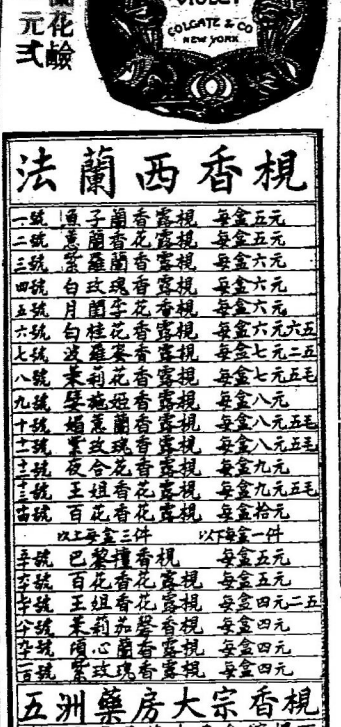 蘭花鹼
元弍
VIOLET
COLGATE & CO
NEW YORK
法蘭西香梘
一號 魚子蘭香露梘 每盒五元
二號 蕙蘭香花露梘 每盒五元
三號 紫羅蘭香露梘 每盒六元
四號 白玫瑰香露梘 每盒六元
五號 月閨李花香梘 每盒六元
六號 白桂花香露梘 每盒六元六五
七號 波羅麥香露梘 每盒七元二五
八號 茉莉花香露梘 每盒七元五毛
九號 香露梘 每盒八元
十號 媚蕙蘭香露梘 每盒八元五毛
十一號 紫玫瑰香露梘 每盒八元五毛
十二號 夜合花香露梘 每盒九元
十三號 王姐香花露梘 每盒九元五毛
十四號 百花香花露梘 每盒拾元
以上每盒三件 以下每盒一件
十五號 巴黎檀香梘 每盒五元
十六號 百花香花露梘 每盒五元
十七號 王姐香花露梘 每盒四元二五
十八號 茉莉茄馨香梘 每盒四元
十九號 心蘭香露梘 每盒四元
二百號 紫玫瑰香露梘 每盒四元
五洲藥房大宗香梘